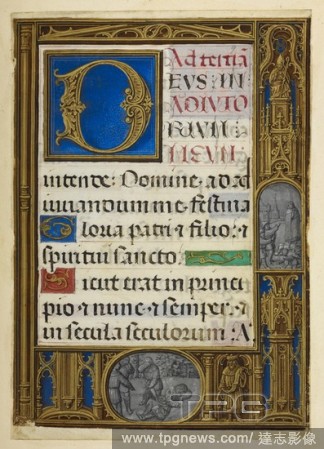 Ad tertiā
DEVS IN
ADIVTO
RIVM
MEVM
intende: Domine, ad ad
iuvandum me festina
Gloria patri et filio: et
spiritui sancto:
Sicut erat in princi
pio et nunc et semper, et
in secula seculorum: A
TPG
www.tpgnews.com/達志影像